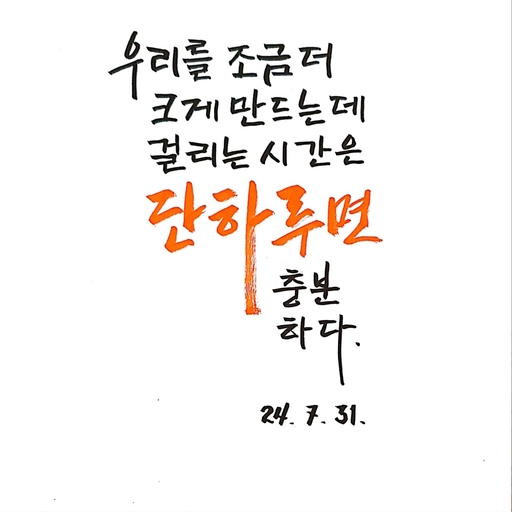 우리를 조금 더
크게 만드는데
걸리는 시간은
단 하루면
충분
하다.
24. 7. 31.